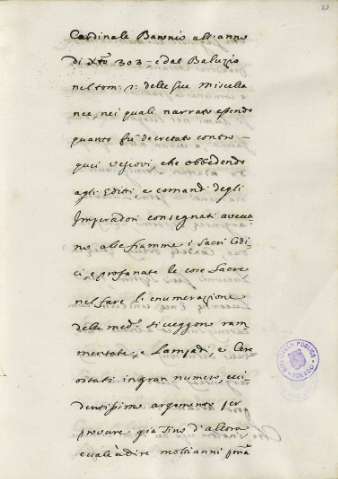 Cardinale Baronio all'anno
di Xto 303 e dal Baluzio
nel tom: 1: delle sue Miscella
nee, nei quali narrato essendo
quanto fù decretato contro
quei Vescovi, che obbedendo
agli Editti e comandi degli
Imperadori consegnati aveva
no alle fiamme i Sacri Codi
ci, e profanate le cose Sacre
nel fare l'enumerazione
delle med.e si veggono ram
mentate, e Lampadi, e Cere
ostati in gran numero, evi
dentissimo argomento per
provare già fino d'allora
cioè a dire molti anni pma